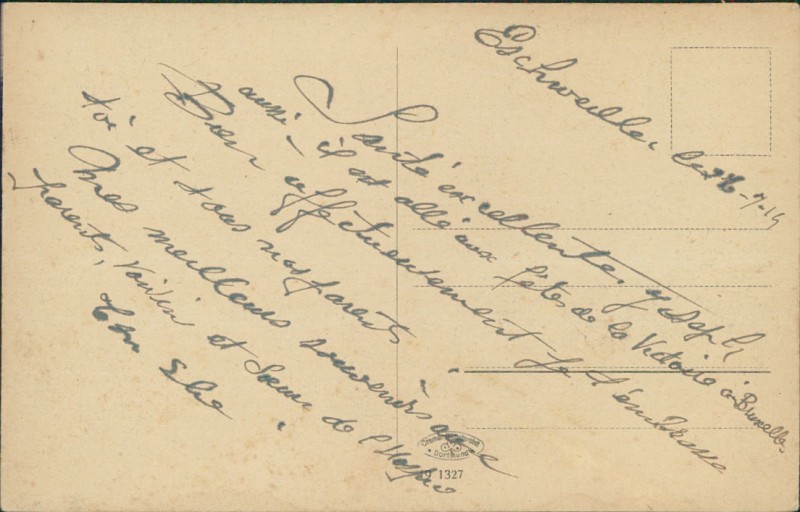 Eschweiller le 26-7-19
Santé excellente. Joseph
aussi - il est allé aux fêtes de la Victoire à Bruxelles
Bien affectueusement je t'embrasse
toi et tous nos parents.
Mes meilleurs souvenirs aux
parents, voisin et Sœur de l'
Ton
19 1327
Dortmund